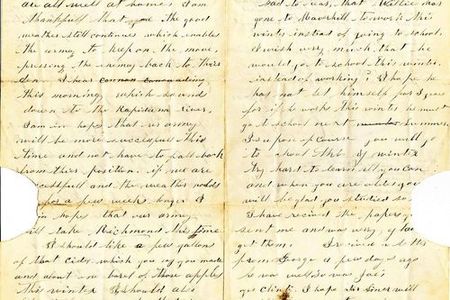 an all well at home. I am
thankfull that the good
weather still continues which enables
the army to keep on the move,
pressing the enemy back to their
Den. I hear cannonading
this morning which sound
down to the Rapidann river,
I am in hope that our army
will be more successfull this
time and not have to fall back
from their position. if we are
successfull and the weather holds
for a few week longer I
in hope that our army
will take Richmond this time
I should like a few gallon
of that Cider which you say you made
and about on barel of those apples
this winter I should also
sad to us, that Willie has
gone to Marshill to work this
winter instead of going to school,
I wish very much that he
would go to school this winter
instead of working? I hope he
has not let himself for a year
for if he works this winter he must
go to school next summer.
you will go
to school this winter
try hard to learn all you can
and when you are older you
will be glad you studied so
I have recived the papers you
sent me and was very glad
get them. I recived a letter
from George a few day ago
he was well so was Joe's
I hope